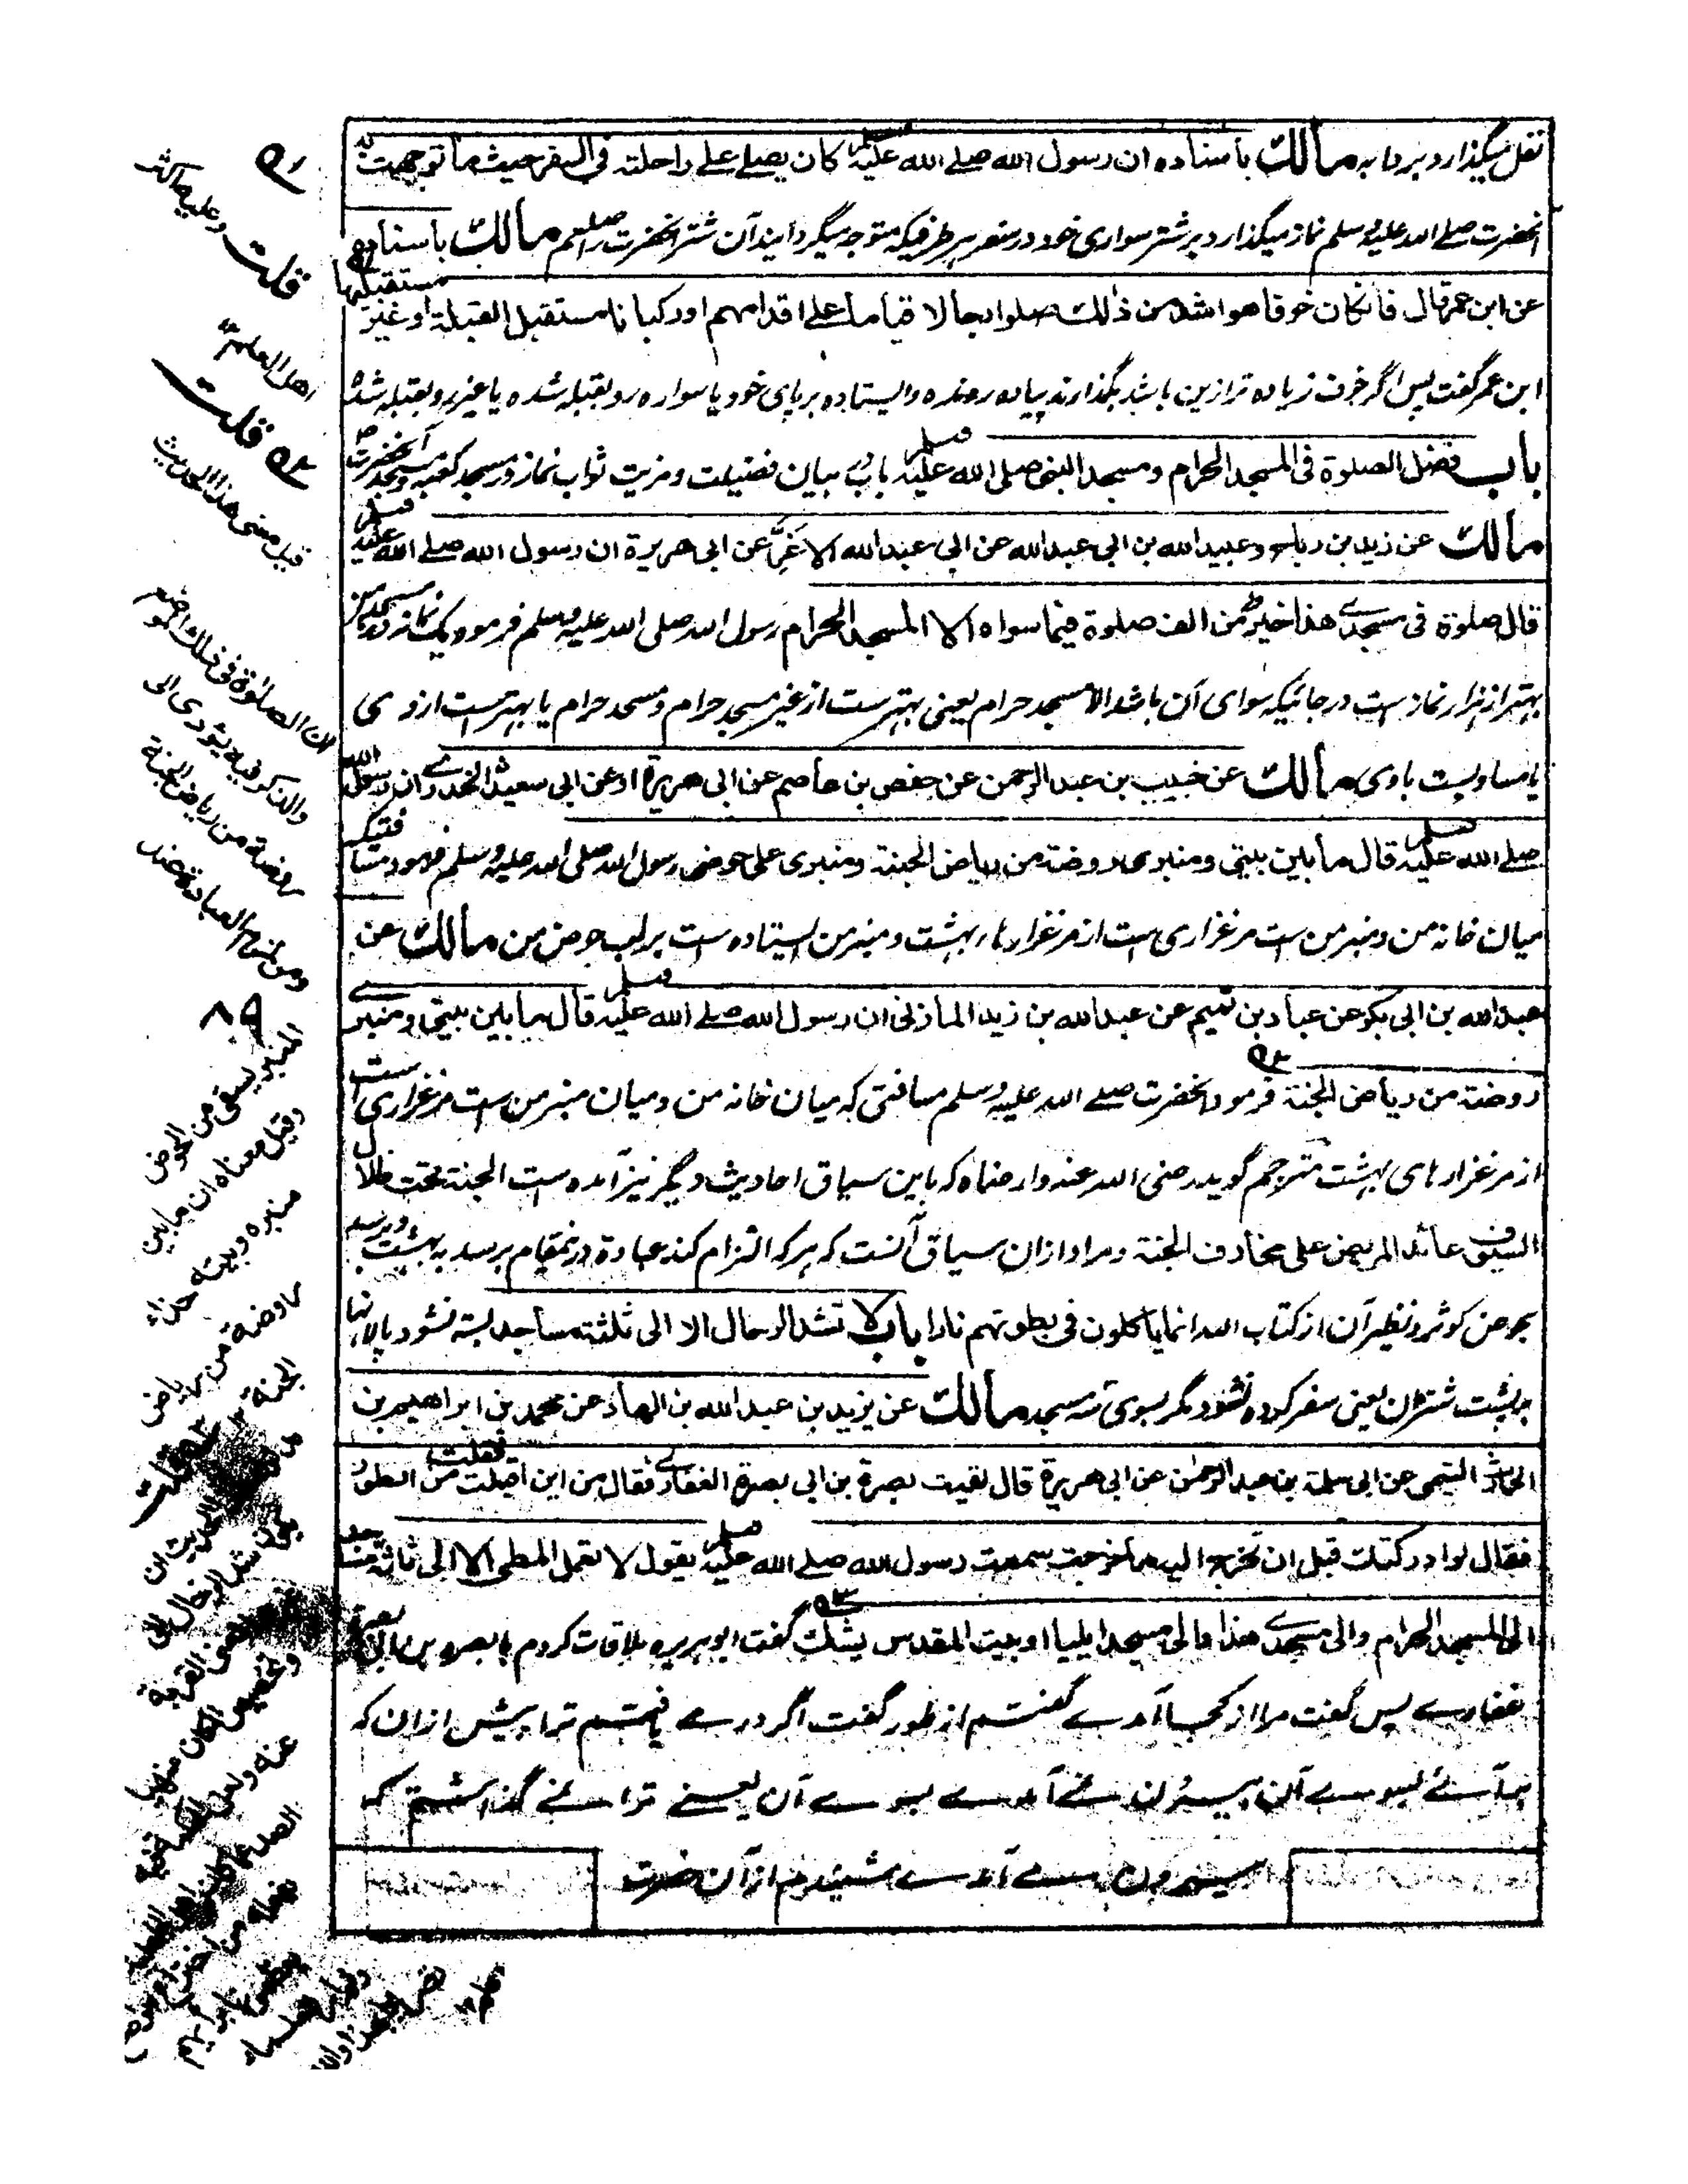 نفل میگذارد بر دابه مالك باسناده ان رسول الله صلے الله علیه وسلم كان یصلے علے راحلته فی السفر حیث ما توجهت به
آنحضرت صلے الله علیه وسلم نماز میگذارد بر شتر سواری خود در سفر بهر طرفیکه متوجه میگردانید آن شتر آنحضرت را صلعم مالك باسناده
عن ابن عمر قال فان كان خوفا هو اشد من ذلك صلوا رجالا قیاما علے اقدامهم او ركبانا مستقبل القبلة او غیر مستقبلیها
ابن عمر گفت پس اگر خوف زیاده تر ازین باشد بگذارند پیاده رونده و ایستاده بر پای خود یا سواره رو بقبله شده یا غیر رو بقبله شده
باب فضل الصلوة فی المسجد الحرام ومسجد النبی صلی الله علیه وسلم باب در بیان فضیلت و مزیت ثواب نماز در مسجد کعبه و مسجد آنحضرت ص
مالك عن زید بن رباح وعبید الله بن ابی عبد الله عن ابی عبد الله الاغر عن ابی هریرة ان رسول الله صلے الله علیه وسلم
قال صلوة فی مسجدے هذا خیر من الف صلوة فیما سواه الا المسجد الحرام رسول الله صلی الله علیه وسلم فرمود یک نماز در مسجد من
بهتر از هزار نماز ست در جائیکه سوای آن باشد الا مسجد حرام یعنی بهتر ست از غیر مسجد حرام و مسجد حرام یا بهتر ست از وی
یا مساویست باوی مالك عن خبیب بن عبد الرحمن عن حفص بن عاصم عن ابی هریرة او عن ابی سعید الخدرے ان رسول الله
صلے الله علیه وسلم قال ما بین بیتی ومنبری روضة من ریاض الجنة ومنبری علی حوضی رسول الله صلی الله علیه وسلم فرمود مسافتیکه
میان خانه من و منبر من ست مرغزاری ست از مرغزارهای بهشت و منبر من ایستاده ست بر لب حوض من مالك عن
عبد الله بن ابی بكر عن عباد بن تمیم عن عبد الله بن زید المازنی ان رسول الله صلے الله علیه وسلم قال ما بین بیتی ومنبرے
روضة من ریاض الجنة فرمود آنحضرت صلے الله علیه وسلم مسافتی که میان خانه من و میان منبر من ست مرغزاری ست
از مرغزارهای بهشت مترجم گوید رضی الله عنه وارضاه که باین سیاق احادیث دیگر نیز آمده ست الجنة تحت ظلال
السیوف عائد المریض علی مخارف الجنة و مراد ازان سیاق آنست که هر که التزام کند عبادة در ینمقام برسد به بهشت و برسد
بحوض کوثر و نظیر آن از کتاب الله انما یاكلون فی بطونهم نارا باب لا تشد الرحال الا الی ثلثة مساجد بسته نشود پالانها
بر پشت شتران یعنی سفر کرده نشود مگر بسوی سه مسجد مالك عن یزید بن عبد الله بن الهاد عن محمد بن ابراهیم بن
الحارث التیمی عن ابی سلمة بن عبد الرحمن عن ابی هریرة قال لقیت بصرة بن ابی بصرة الغفارے فقال من این اقبلت فقلت من الطور
فقال لو ادركتك قبل ان تخرج الیه ما خرجت سمعت رسول الله صلے الله علیه وسلم یقول لا تعمل المطی الا الی ثلثة مساجد
الی المسجد الحرام والی مسجدے هذا والی مسجد ایلیا او بیت المقدس یشك گفت ابو هریره ملاقات کردم با بصره بن ابی بصرة
غفارے پس گفت مرا از کجا آمدے گفتم از طور گفت اگر درے یافتم ترا پیش ازان که
بر آئے بسوے آن بیرون نمے آمدے بسوے آن یعنے ترا نمے گذاشتم که
بیرون آمدے شنیدم از آن حضرت
قلت وعلیه اكثر
اهل العلم
قلت
قیل معنی هذا الحدیث
ان الصلوة فی ذلك الموضع
والذكر فیه یؤدی الی
روضة من ریاض الجنة
ومن لزم العبادة عند
المنبر یسقی من الحوض
وقیل معناه ان ما بین
منبره وبیته حذاء
روضة من ریاض
الجنة